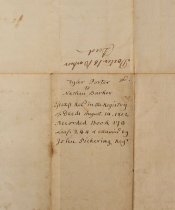 Porter to Barker
Deed
Tyler Porter
to
Nathan Barker
Rec'd in the Registry
of Deeds August 14, 1812
Recorded Book
Leaf 244 & examined by
John Pickering Regr